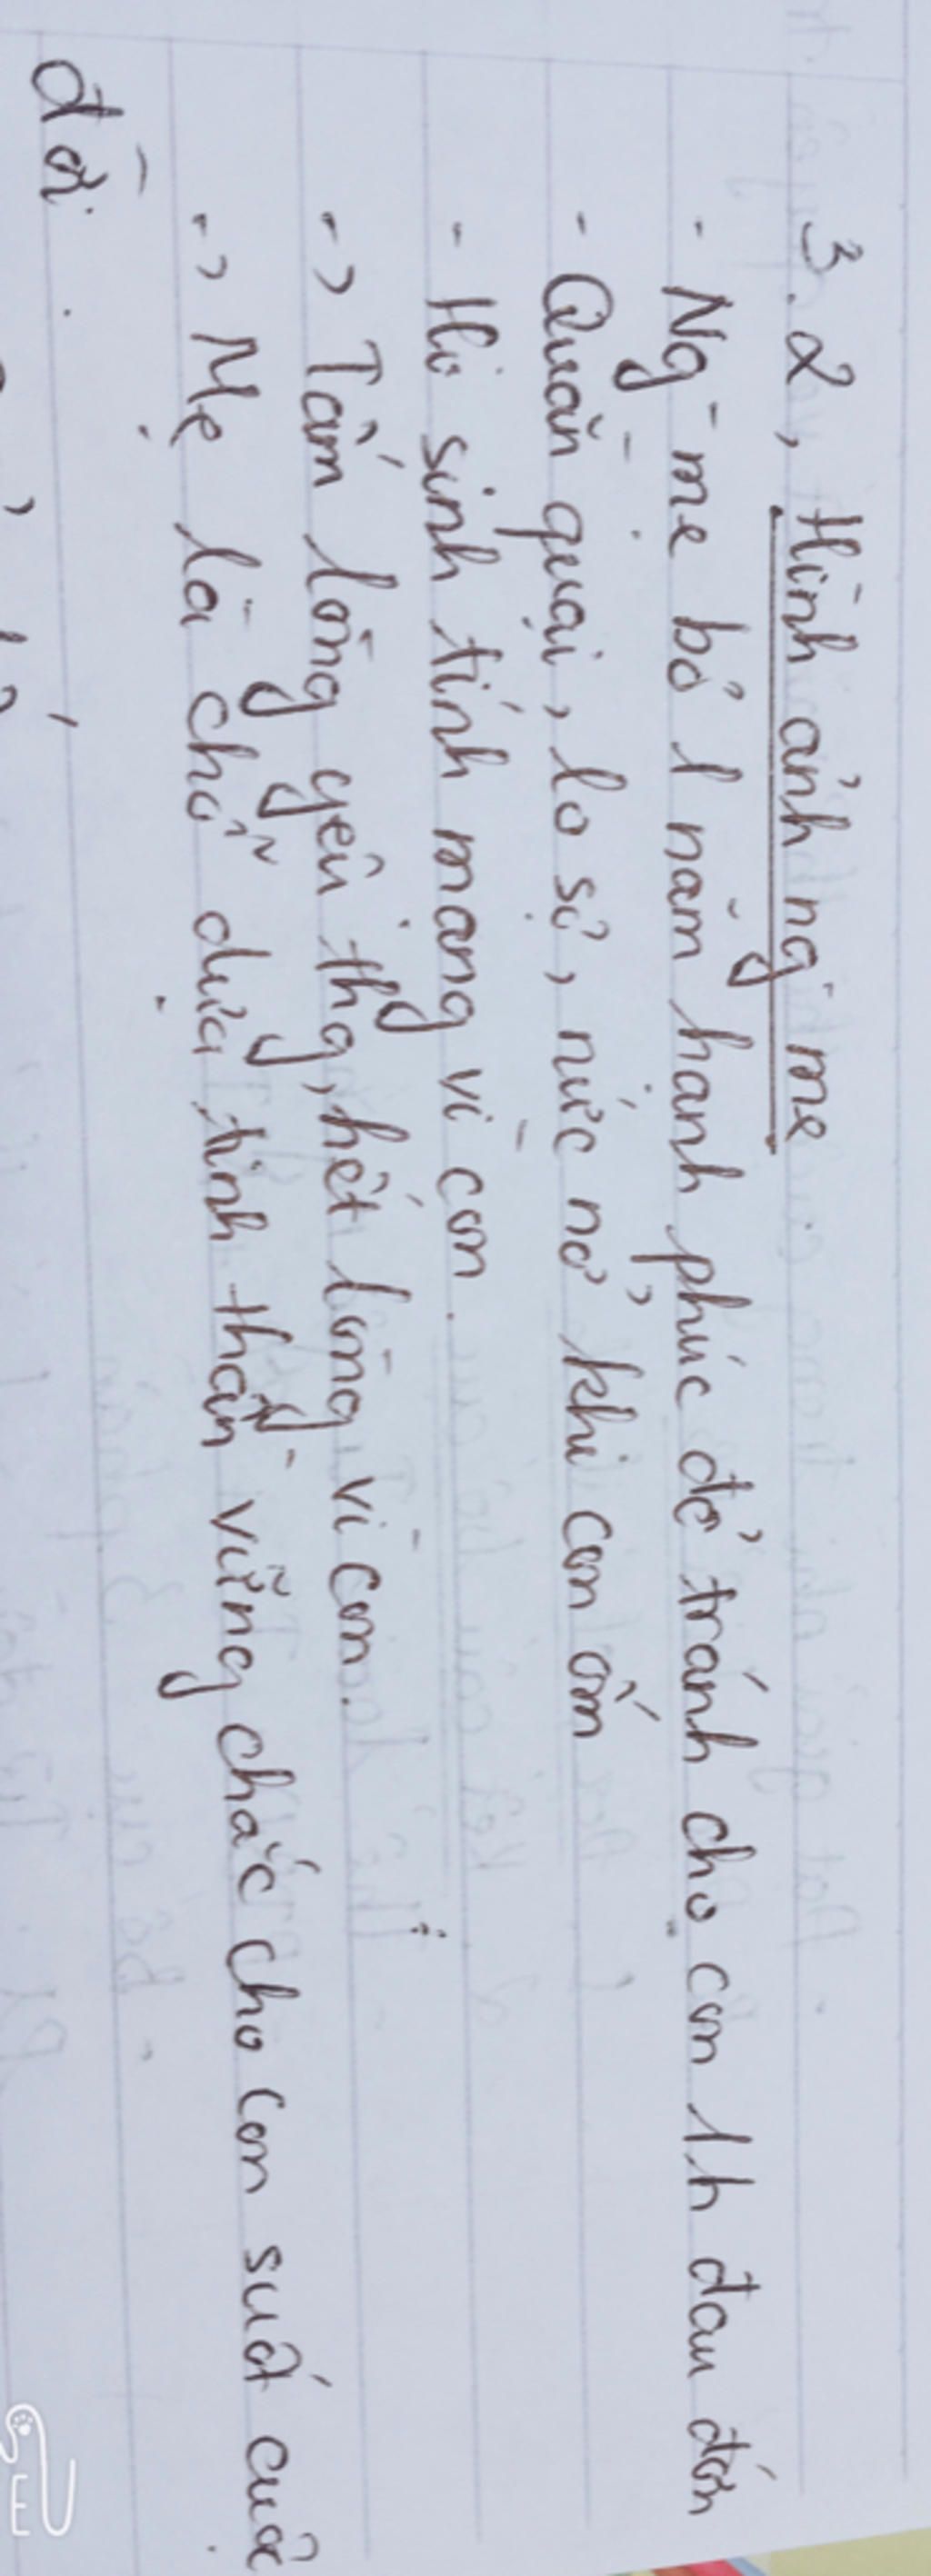 3.2, Hình ảnh ng` mẹ
- Ng` mẹ bỏ 1 năm hạnh phúc để tránh cho con 1h đau đớn
- Quằn quại, lo sợ, nức nở khi con ốm
- Hi sinh tính mạng vì con.
-> Tấm lòng yêu thg, hết lòng vì con.
-> Mẹ là chỗ dựa tinh thần vững chắc cho con suốt cuộc
đời.